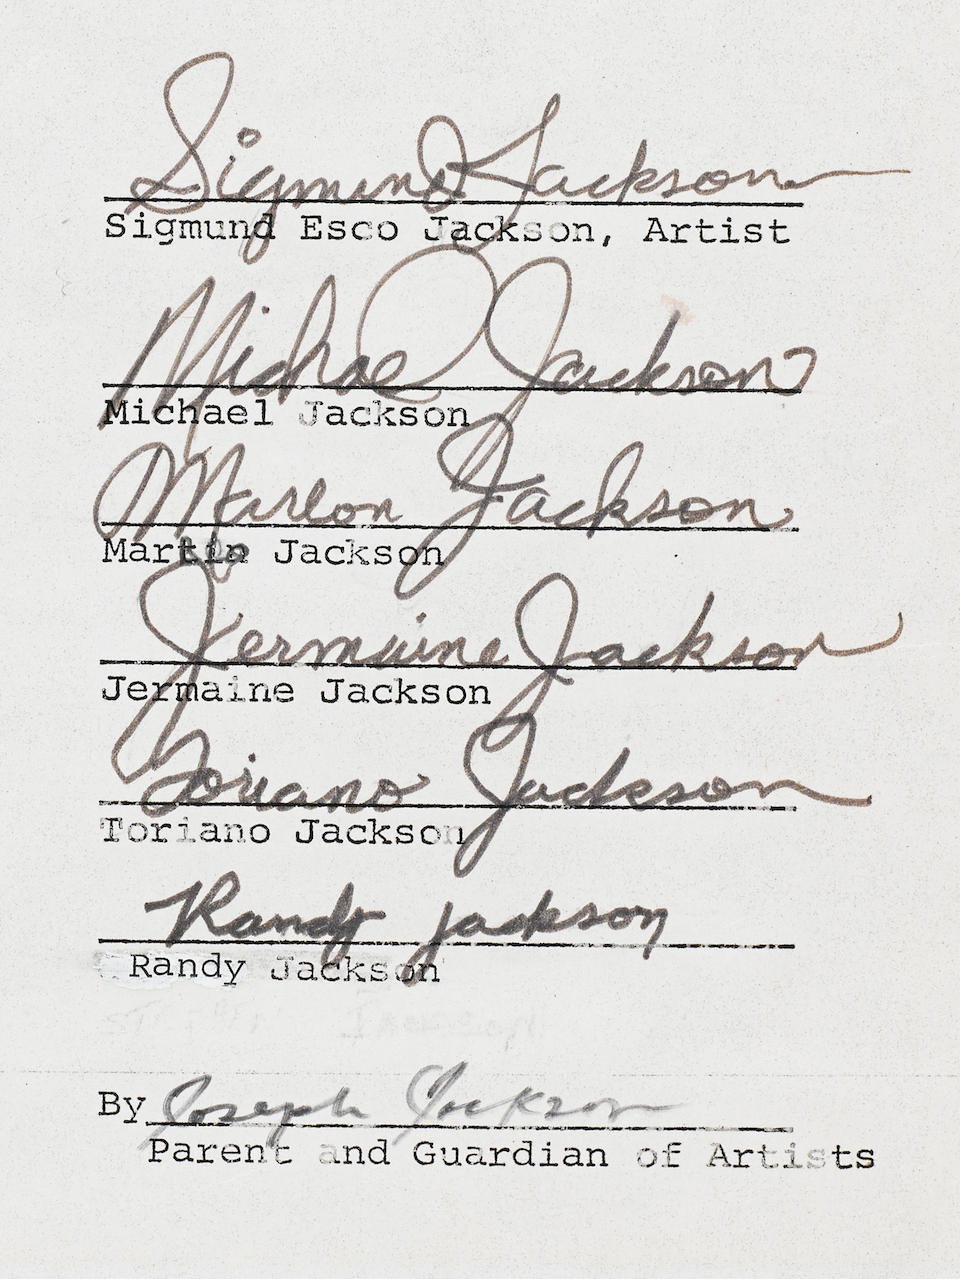 Sigmund Jackson
Sigmund Esco Jackson, Artist
Michael Jackson
Michael Jackson
Marlon Jackson
Martin Jackson
Jermaine Jackson
Jermaine Jackson
Toriano Jackson
Toriano Jackson
Randy Jackson
Randy Jackson
By Joseph Jackson
Parent and Guardian of Artists